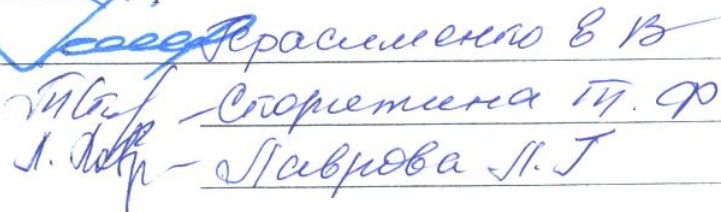 Герасименко Е В
– Сторожина Т. Ф
Л. Лавр – Лаврова Л. Г